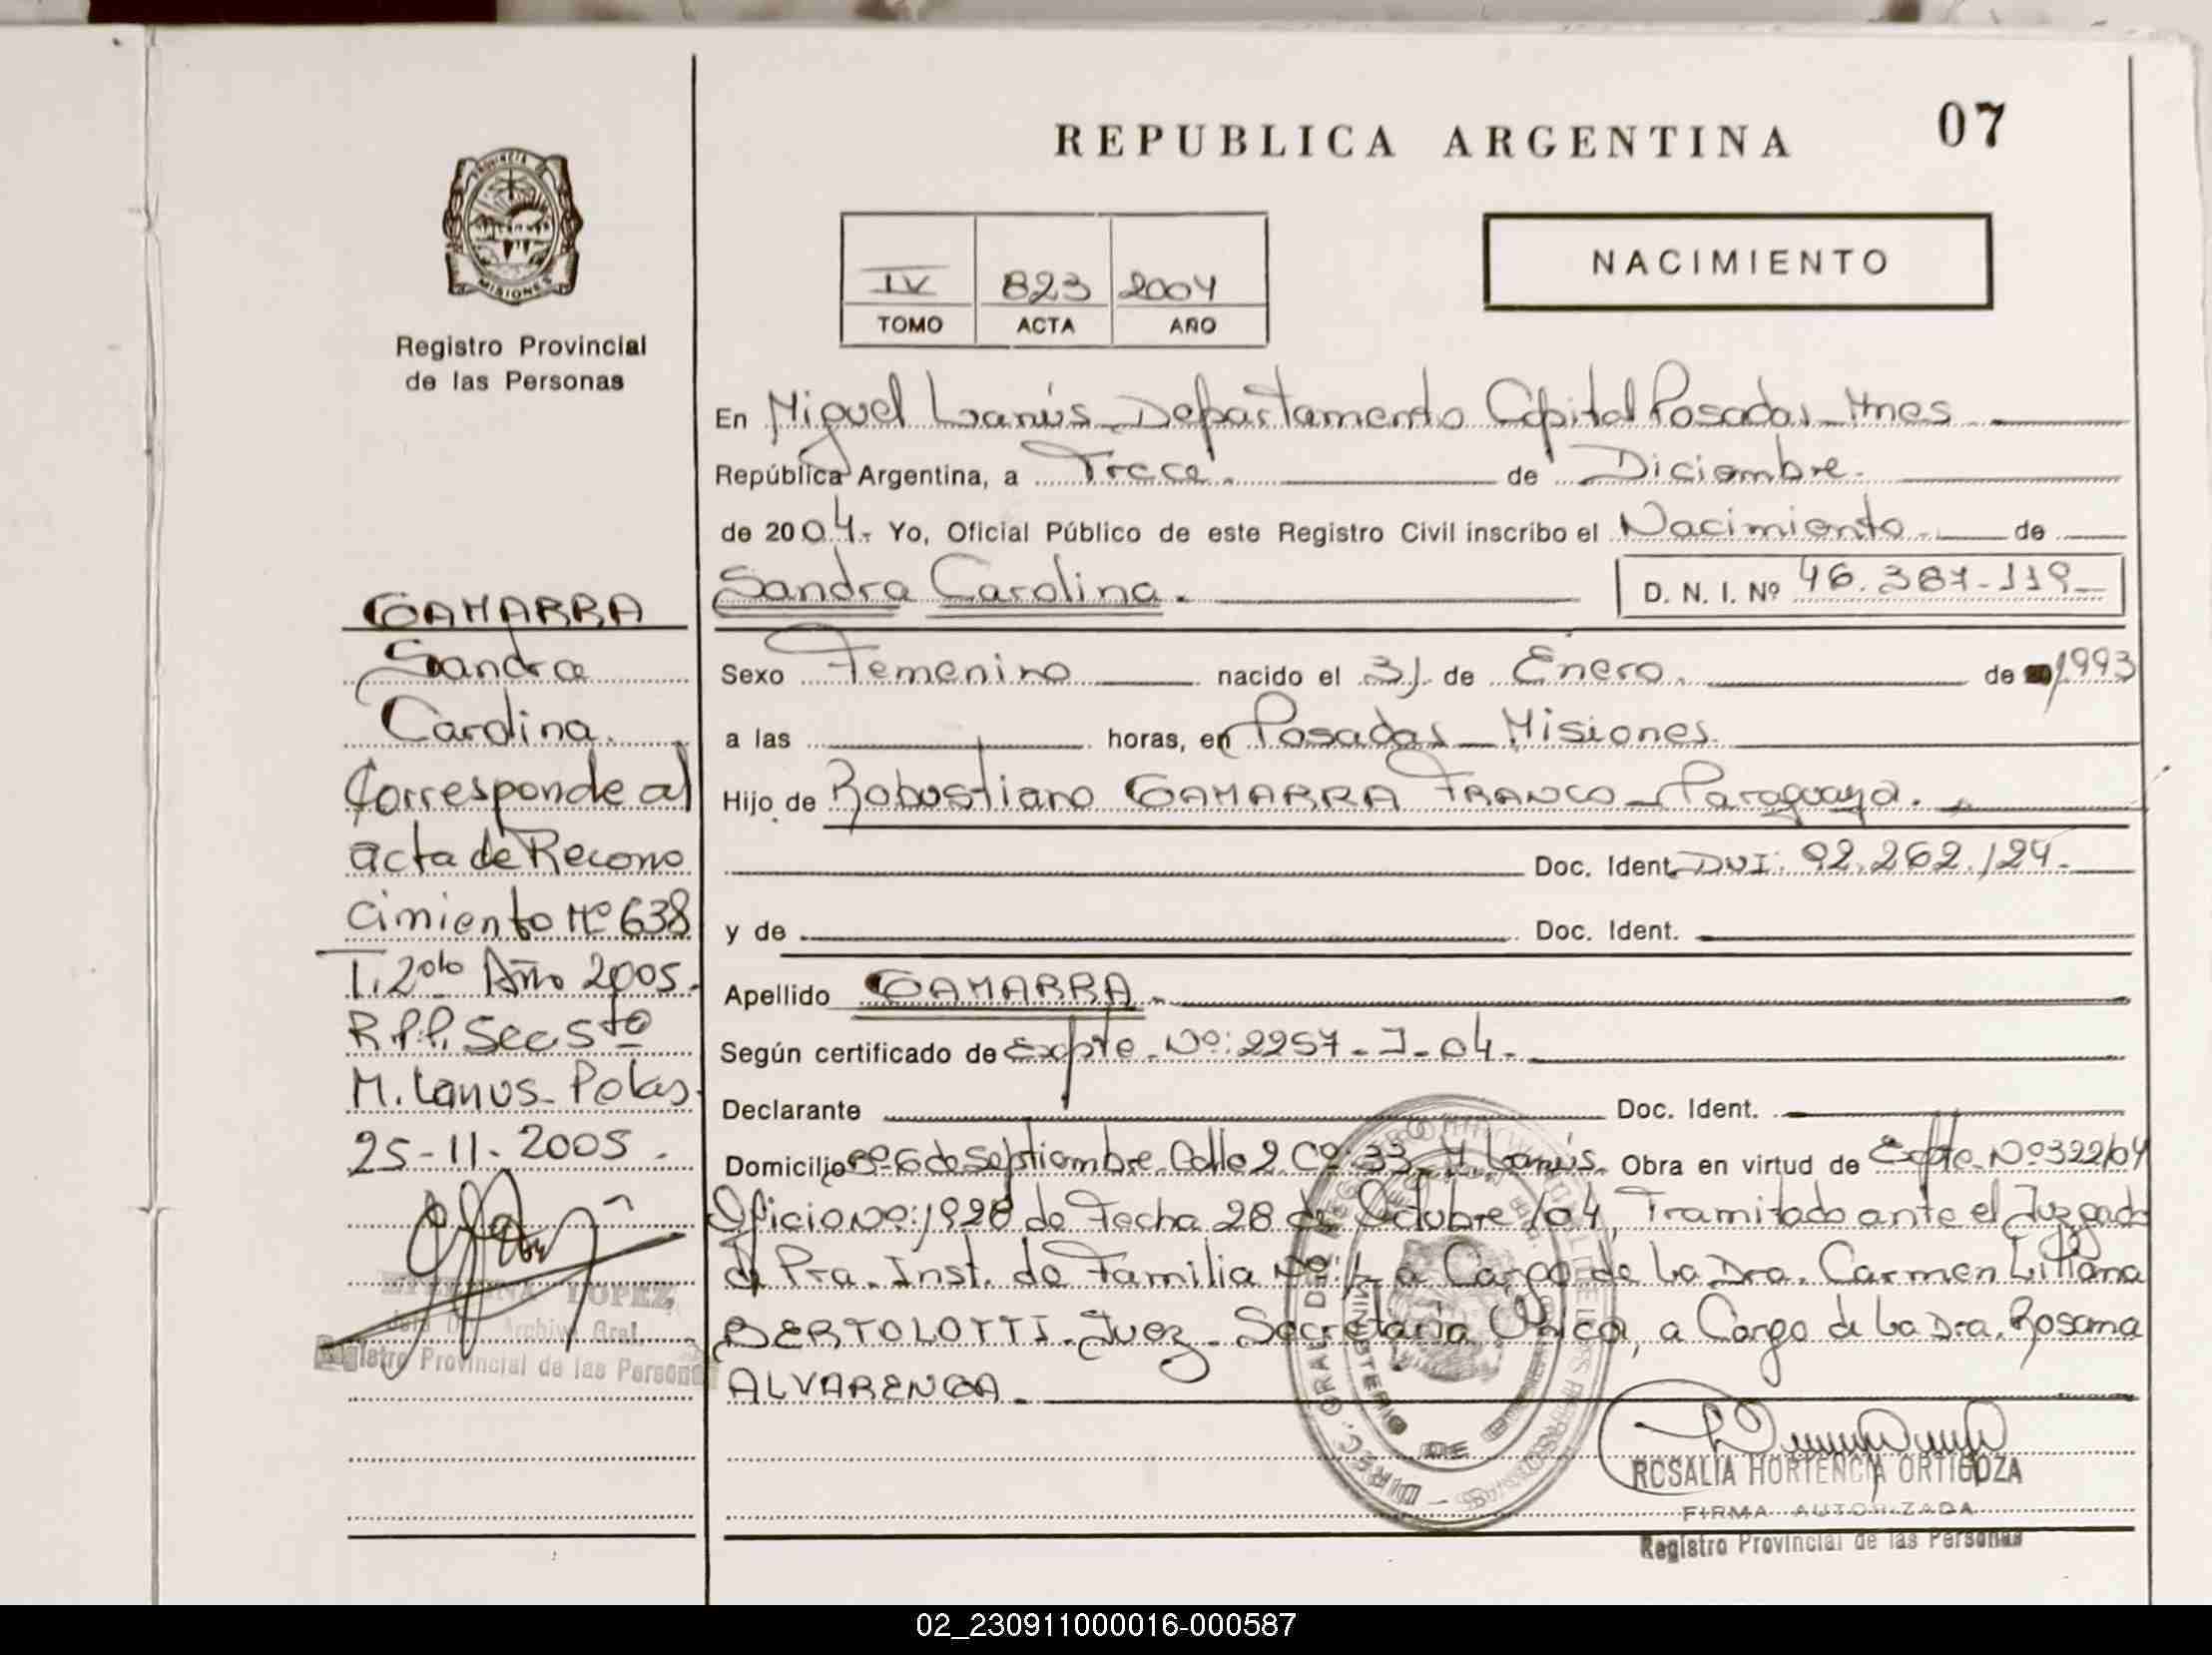 REPUBLICA ARGENTINA
07
PROVINCIA
MISIONES
Registro Provincial
de las Personas
IV 823 2004
TOMO ACTA AÑO
NACIMIENTO
En Miguel Lanús - Departamento Capital Posadas - Mnes
República Argentina, a Trece. de Diciembre.
de 2004.- Yo, Oficial Público de este Registro Civil inscribo el Nacimiento. de
Sandra Carolina.
D. N. I. Nº 46.387-119
Sexo Femenino nacido el 31. de Enero. de 1993
a las horas, en Posadas - Misiones.
Hijo de Robustiano GAMARRA FRANCO - Paraguaya.
Doc. Ident. DNI: 92.262.124.
y de Doc. Ident.
Apellido GAMARRA.
Según certificado de Expte. Nº: 2257 - J - 04.
Declarante Doc. Ident.
Domicilio Bº 6 de Septiembre. Calle 2 Cª 33. M Lanús. Obra en virtud de Expte. Nº 322/04
Oficio Nº: 1928 de Fecha 28 de Octubre /04, Tramitado ante el Juzgado
de Pra. Inst. de Familia Nº: 1 a Cargo de La Dra. Carmen Liliana
BERTOLOTTI - Juez - Secretaría Única, a Cargo de La Dra. Rosana
ALVARENGA.
GAMARRA
Sandra
Carolina.
Corresponde al
acta de Recono
cimiento Nº 638
T. 2º Año 2005.
R.P.P. Secc 5ta
M. Lanus - Pdas.
25-11-2005.
LOPEZ
Archivo Gral.
Registro Provincial de las Personas
MINISTERIO DE
ROSALIA HORTENCIA ORTIGOZA
FIRMA AUTORIZADA
Registro Provincial de las Personas
02_230911000016-000587